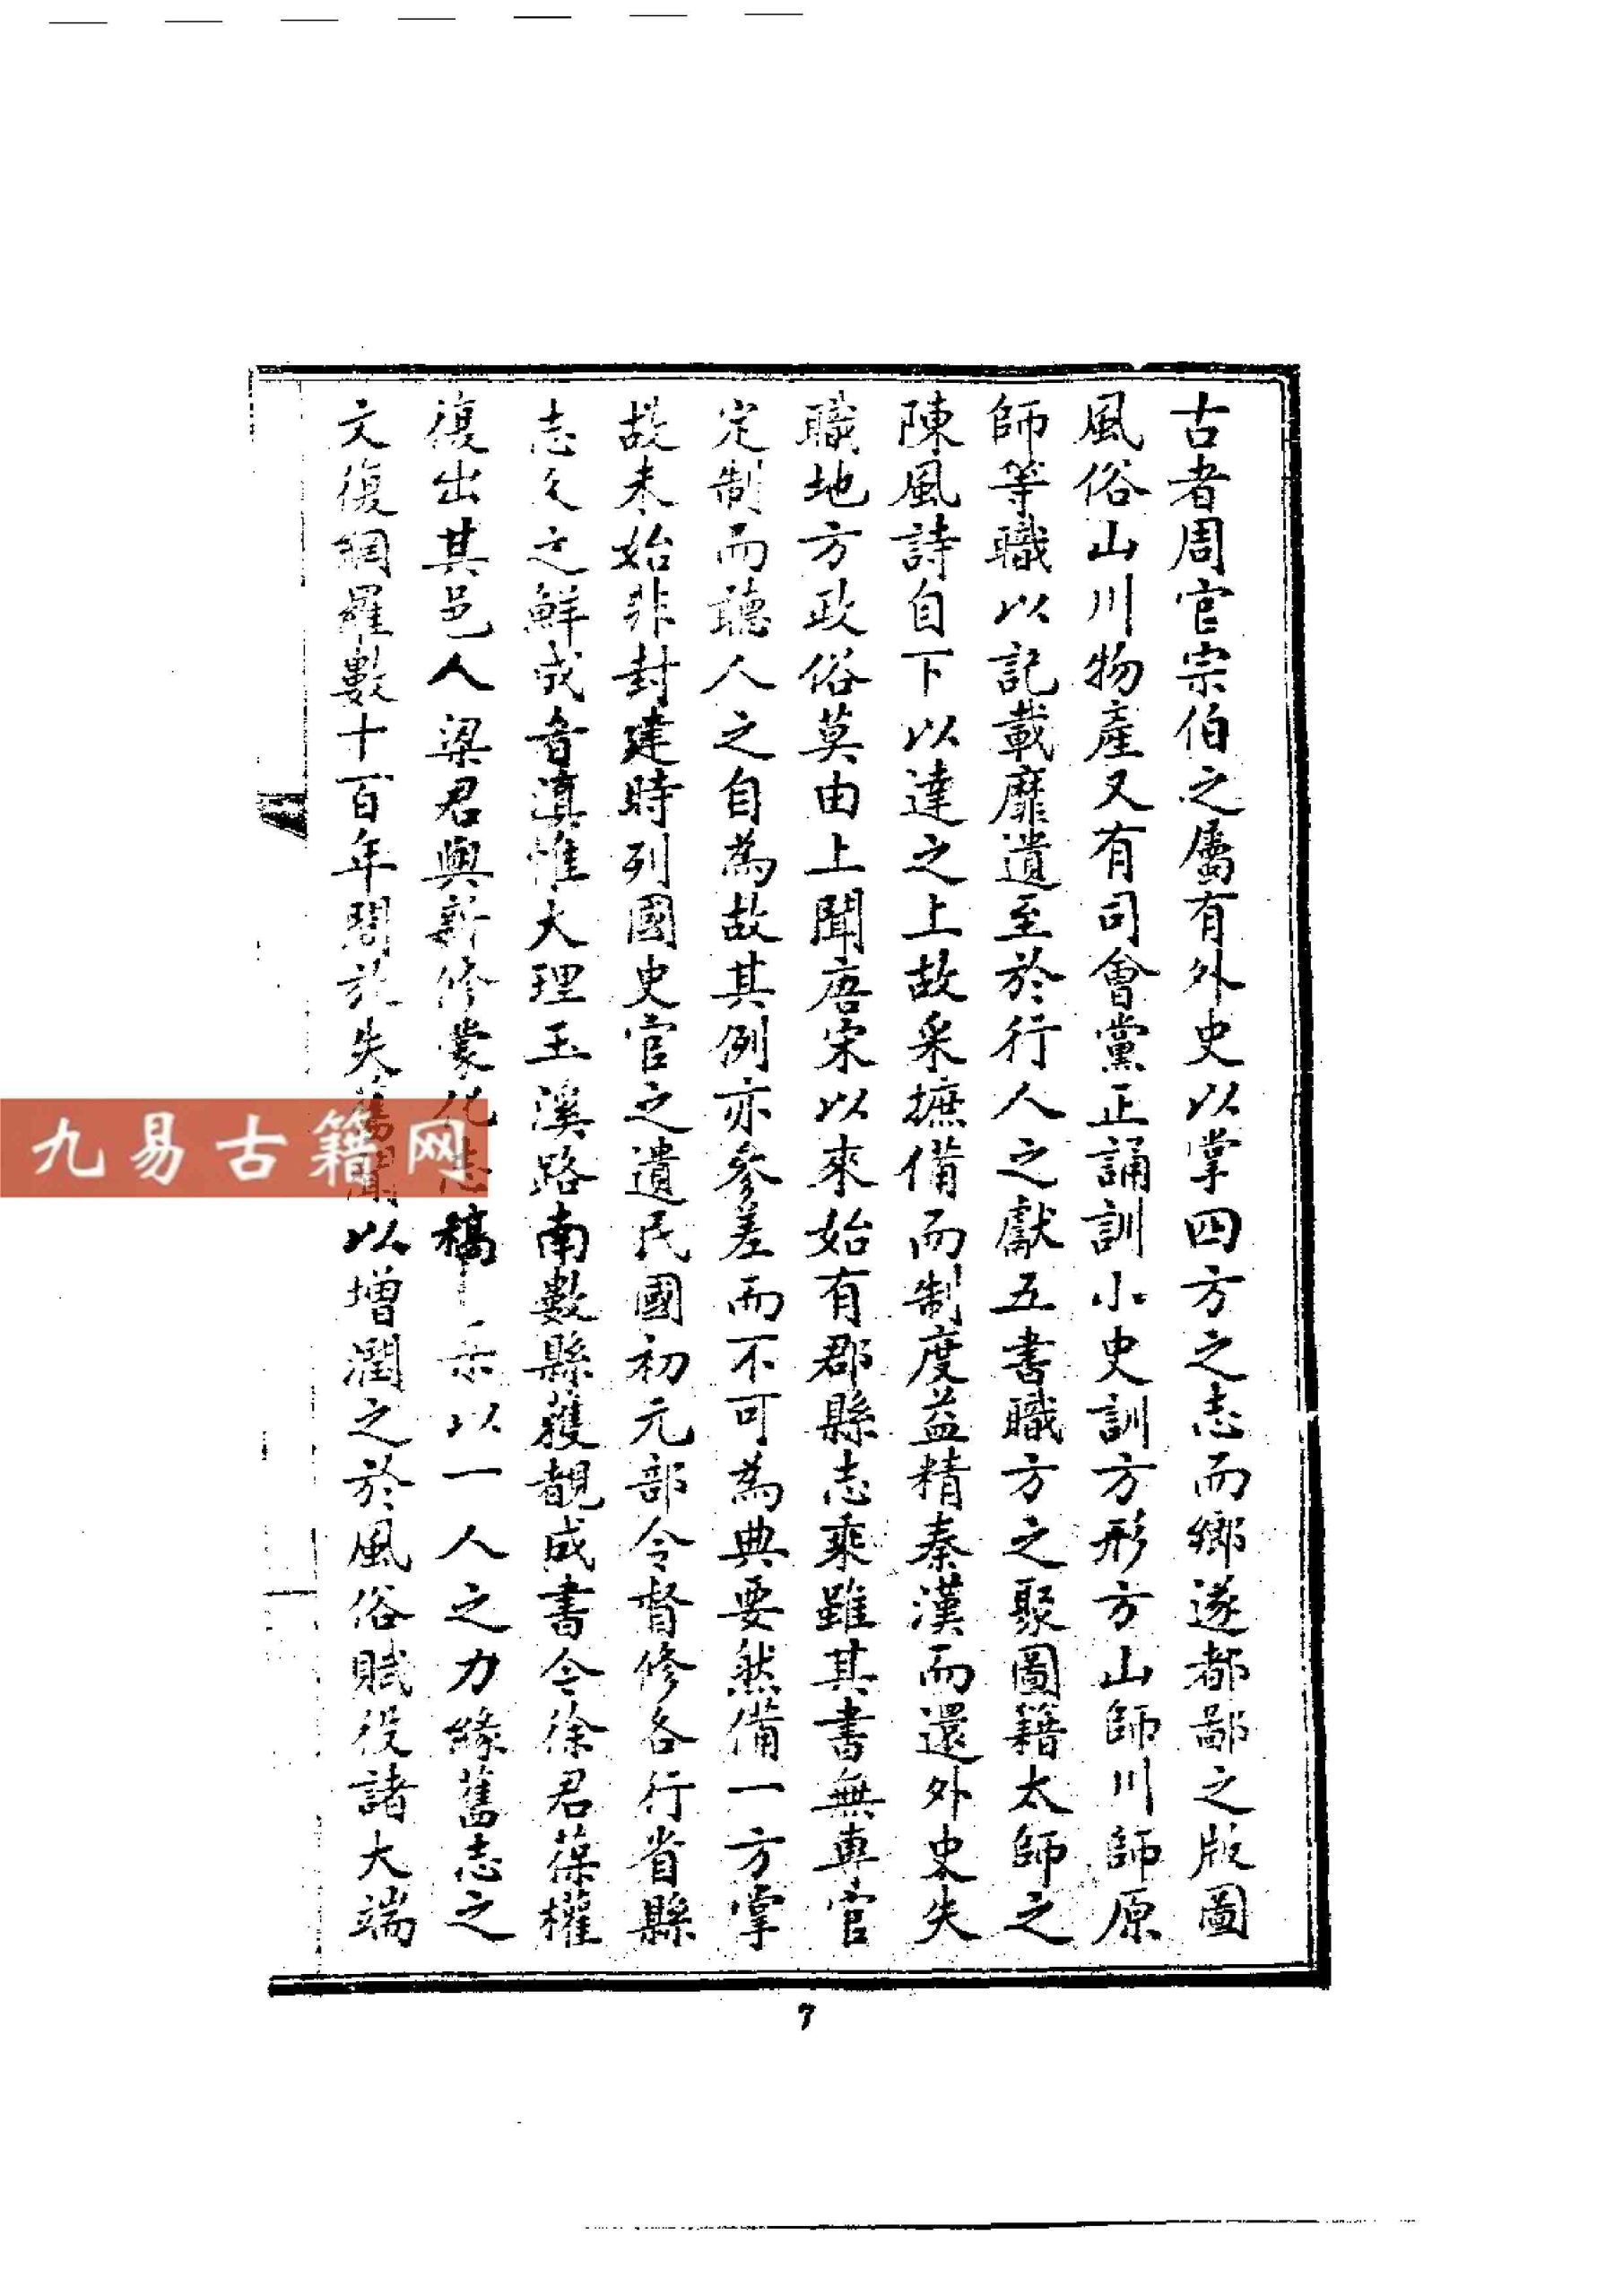 古者周官宗伯之屬有外史以掌四方之志而鄉遂都鄙之版圖
風俗山川物產又有司會黨正誦訓小史訓方形方山師川師原
師等職以記載靡遺至於行人之獻五書職方之聚圖籍太師之
陳風詩自下以達之上故采摭備而制度益精秦漢而還外史失
職地方政俗莫由上聞唐宋以來始有郡縣志乘雖其書無專官
定制而聽人之自為故其例亦參差而不可為典要然備一方掌
故未始非封建時列國史官之遺民國初元部令督修各行省縣
志久之鮮成者滇惟大理玉溪路南數縣獲覩成書今徐君葆權
復出其邑人梁君輿新修蒙化志稿 示以一人之力緣舊志之
文復網羅數十百年間放失舊聞以增潤之於風俗賦役諸大端
九易古籍网
7